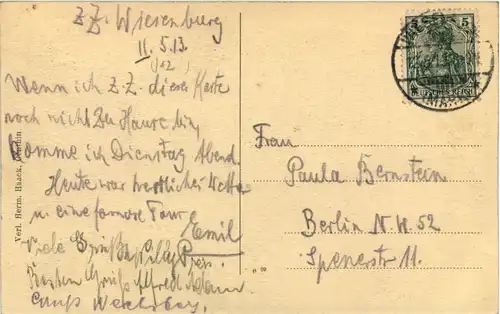 z. Z. Wiesenburg
11. 5. 13.
Wenn ich z. Z. dieser Karte
noch nicht zu Hause bin,
komme ich Dienstag Abend.
Heute war herrliches Wetter
u. eine famose Tour
Emil
Viele Grüße
Besten Gruß Alfred
Gruß
Frau
Paula Bernstein
Berlin N.W. 52
Spenerstr 11.
Verl. Herm. Haack,
5
DEUTSCHES REICH